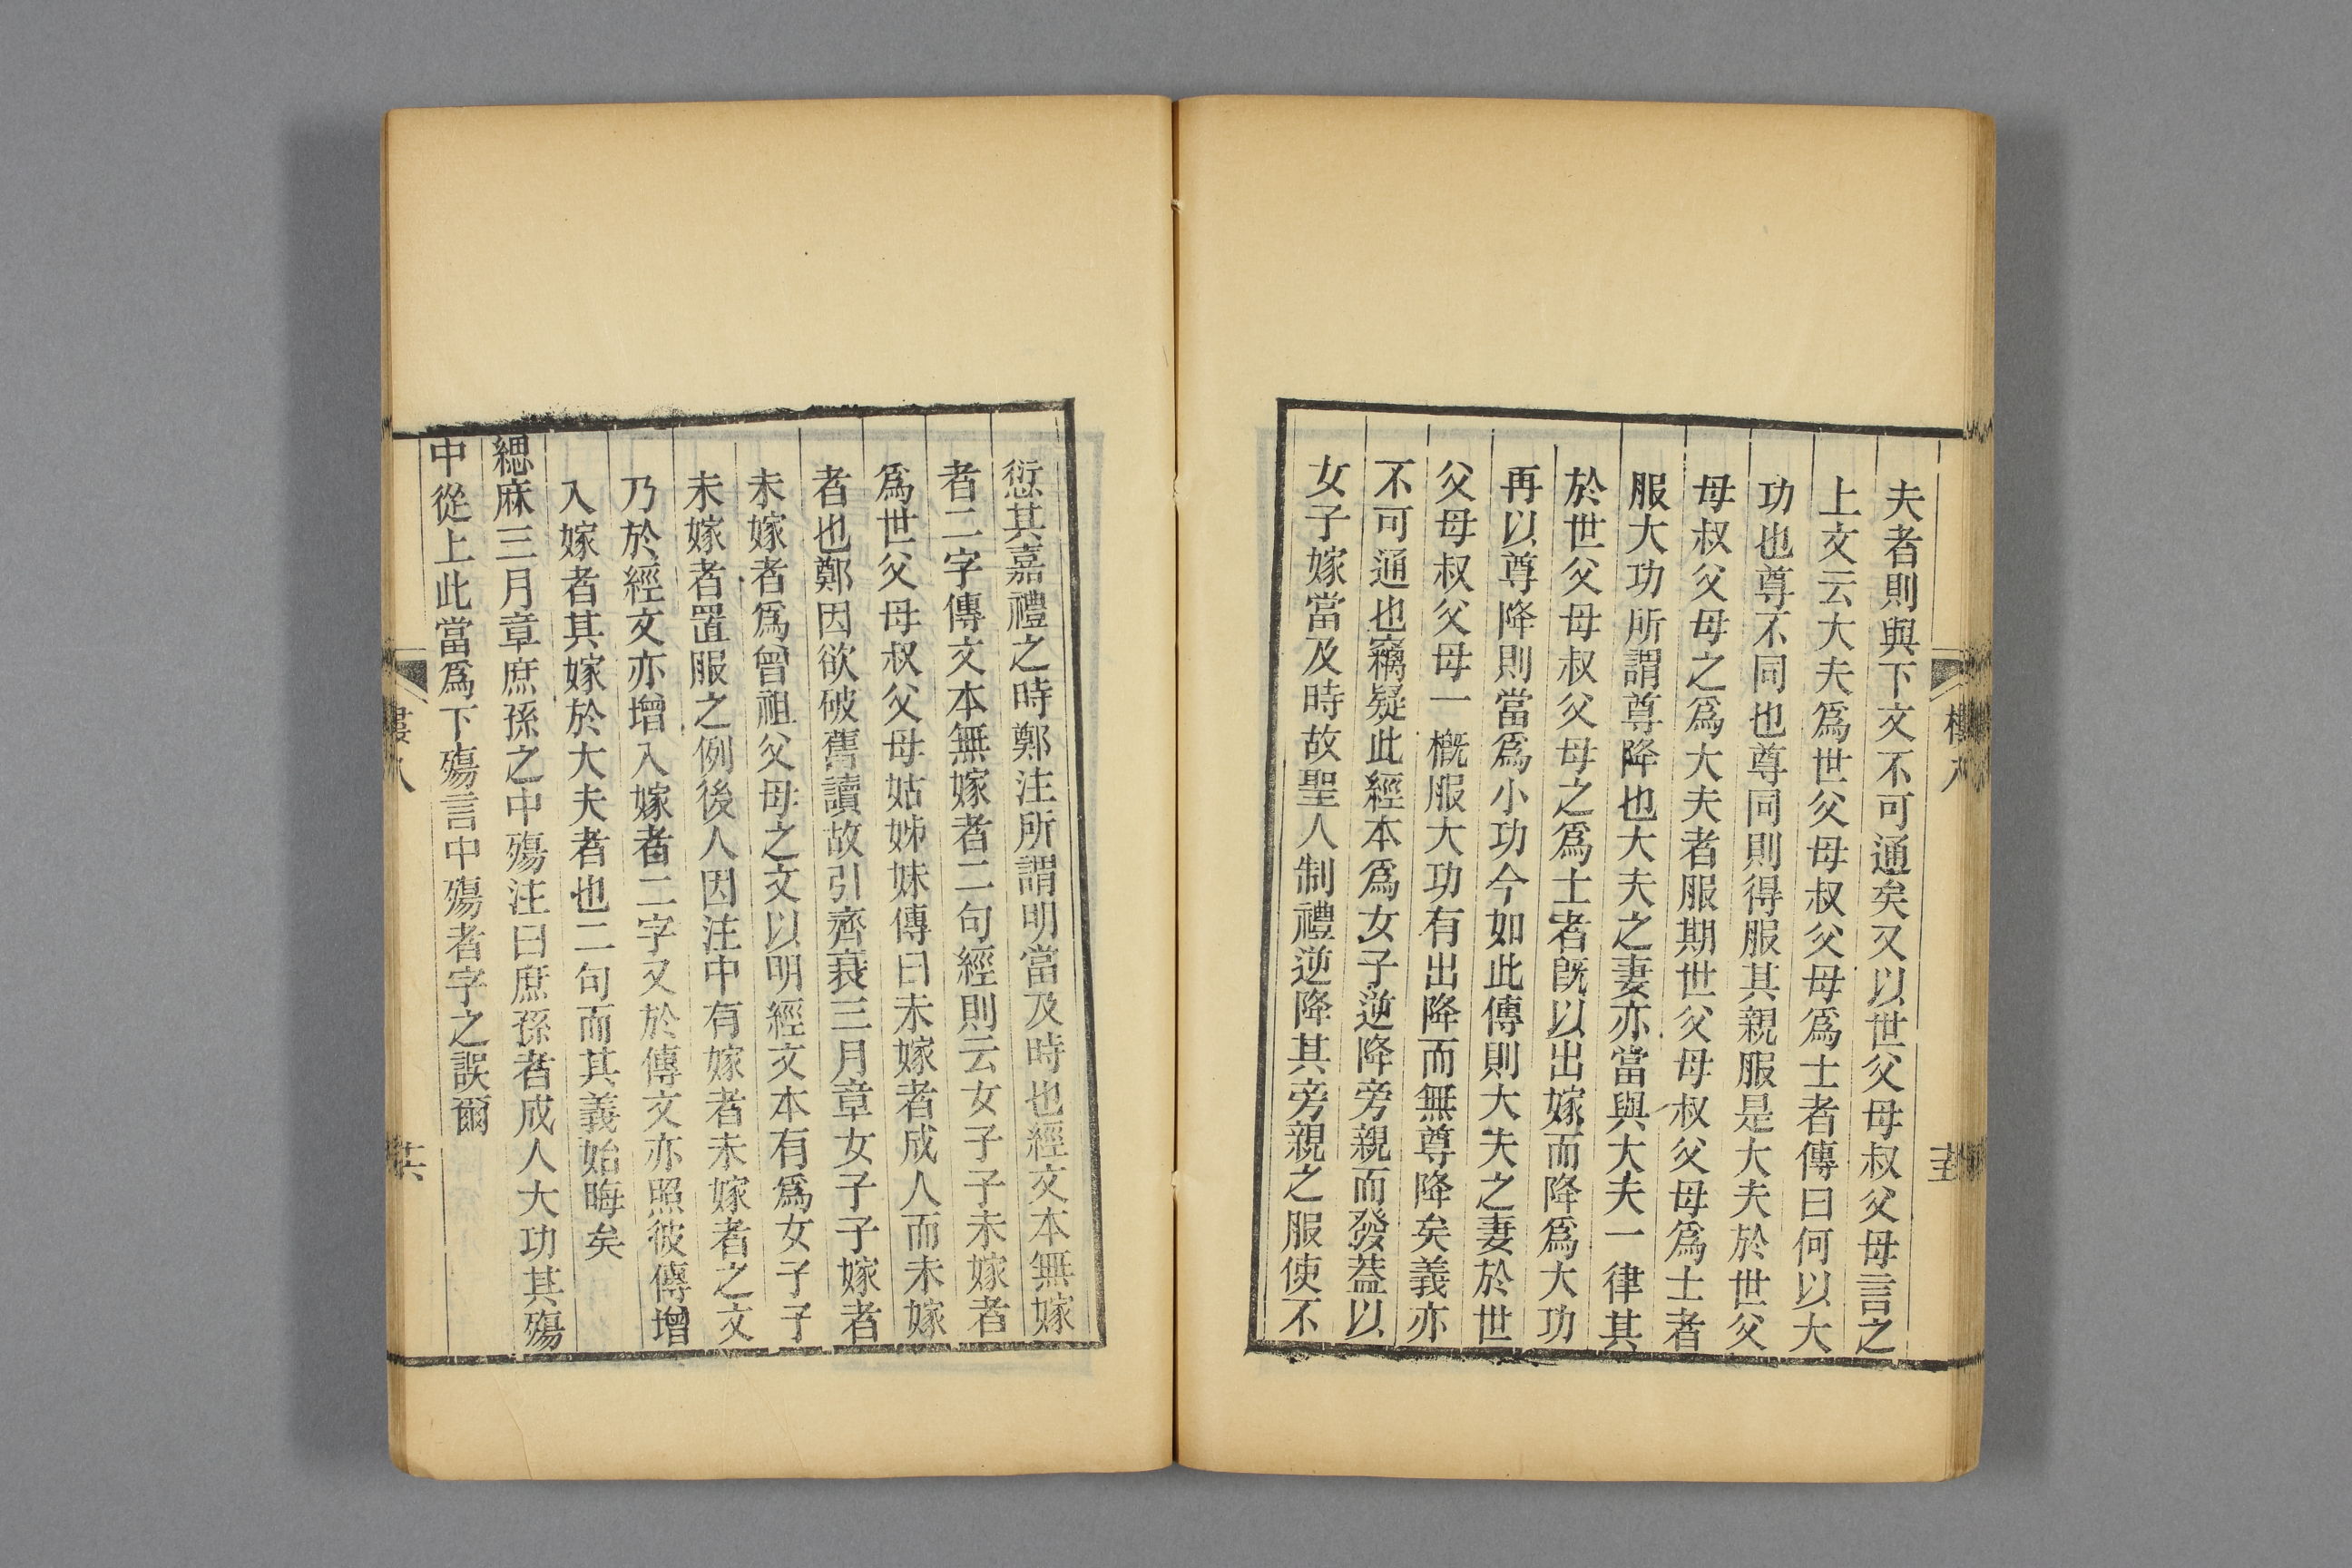 夫者則與下文不可通矣又以世父母叔父母言之
上文云大夫爲世父母叔父母爲士者傳曰何以大
功也尊不同也尊同則得服其親服是大夫於世父
母叔父母之爲大夫者服期世父母叔父母爲士者
服大功所謂尊降也大夫之妻亦當與大夫一律其
於世父母叔父母之爲士者旣以出嫁而降爲大功
再以尊降則當爲小功今如此傳則大夫之妻於世
父母叔父母一槪服大功有出降而無尊降矣義亦
不可通也竊疑此經本爲女子逆降旁親而發蓋以
女子嫁當及時故聖人制禮逆降其旁親之服使不
愆其嘉禮之時鄭注所謂明當及時也經文本無嫁
者二字傳文本無嫁者二句經則云女子子未嫁者
爲世父母叔父母姑姊妹傳曰未嫁者成人而未嫁
者也鄭因欲破舊讀故引齊衰三月章女子子嫁者
未嫁者爲曾祖父母之文以明經文本有爲女子子
未嫁者置服之例後人因注中有嫁者未嫁者之文
乃於經文亦增入嫁者二字又於傳文亦照彼傳增
入嫁者其嫁於大夫者也二句而其義始晦矣
緦麻三月章庶孫之中殤注曰庶孫者成人大功其殤
中從上此當爲下殤言中殤者字之誤爾